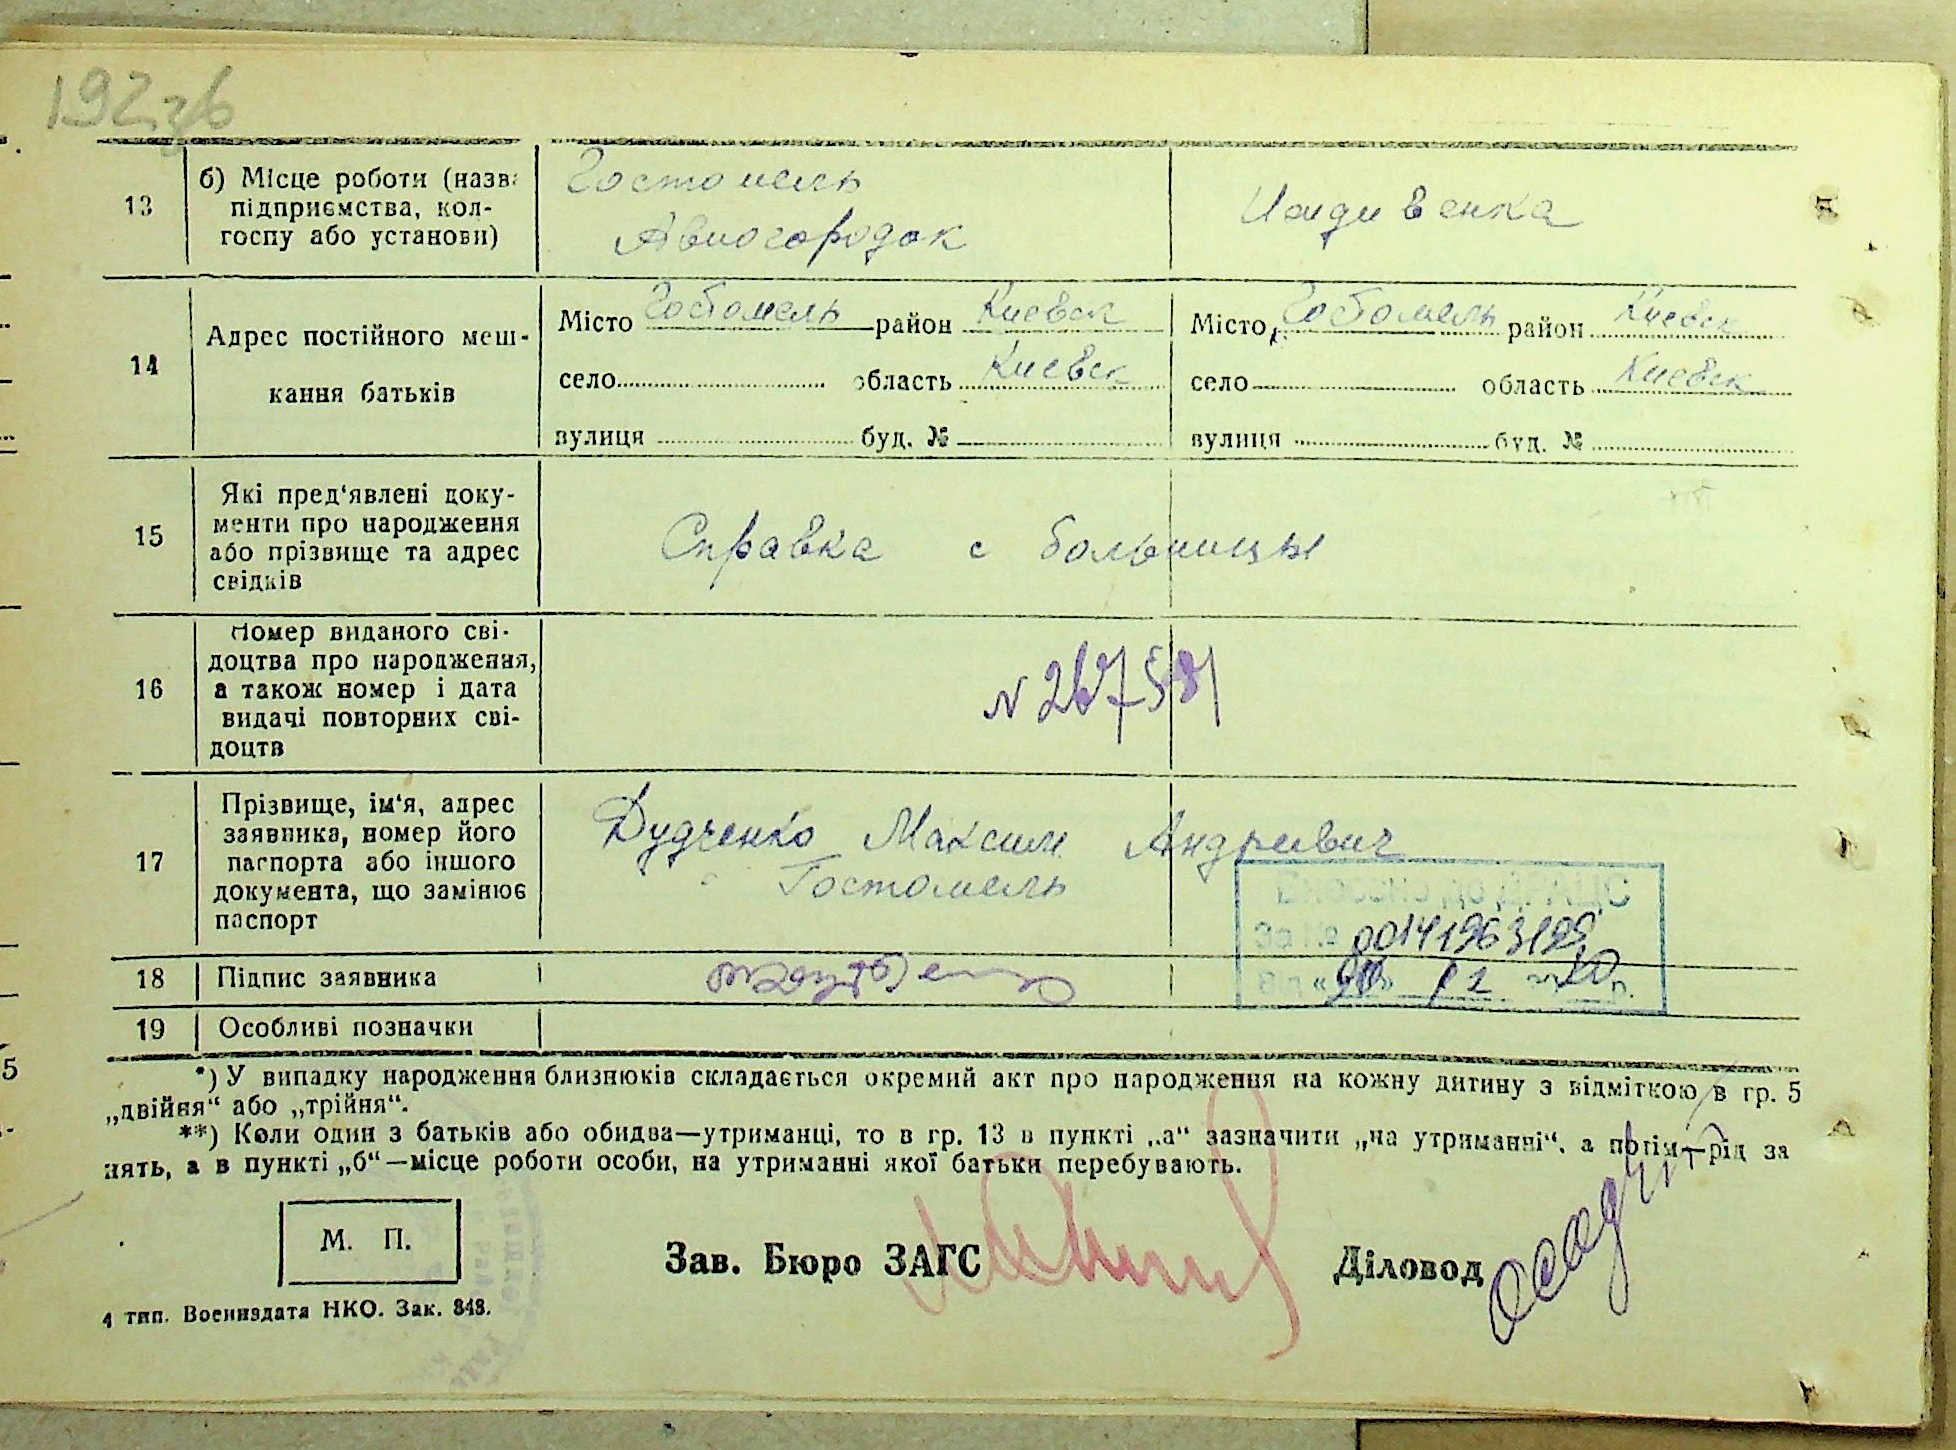 192зв
13
б) Місце роботи (назва
підприємства, кол-
госпу або установи)
Гостомель
Авиогородок
Иждивенка
14
Адрес постійного меш-
кання батьків
Місто Гостомель район Киевск
село область Киевск
вулиця буд. №
Місто Гостомель район Киевск
село область Киевск
вулиця буд. №
15
Які пред'явлені доку-
менти про народження
або прізвище та адрес
свідків
Справка с больницы
16
Номер виданого сві-
доцтва про народження,
а також номер і дата
видачі повторних сві-
доцтв
17
Прізвище, ім'я, адрес
заявника, номер його
паспорта або іншого
документа, що замінює
паспорт
Дудченко Максим Андреевич
Гостомель
00141963195
18
Підпис заявника
12
19
Особливі позначки
*) У випадку народження близнюків складається окремий акт про народження на кожну дитину з відміткою в гр. 5
„двійня“ або „трійня“.
**) Коли один з батьків або обидва—утриманці, то в гр. 13 в пункті „а“ зазначити „на утриманні“, а потім—рід за
нять, а в пункті „б“—місце роботи особи, на утриманні якої батьки перебувають.
М. П.
Зав. Бюро ЗАГС
Діловод
4 тип. Воениздата НКО. Зак. 848.